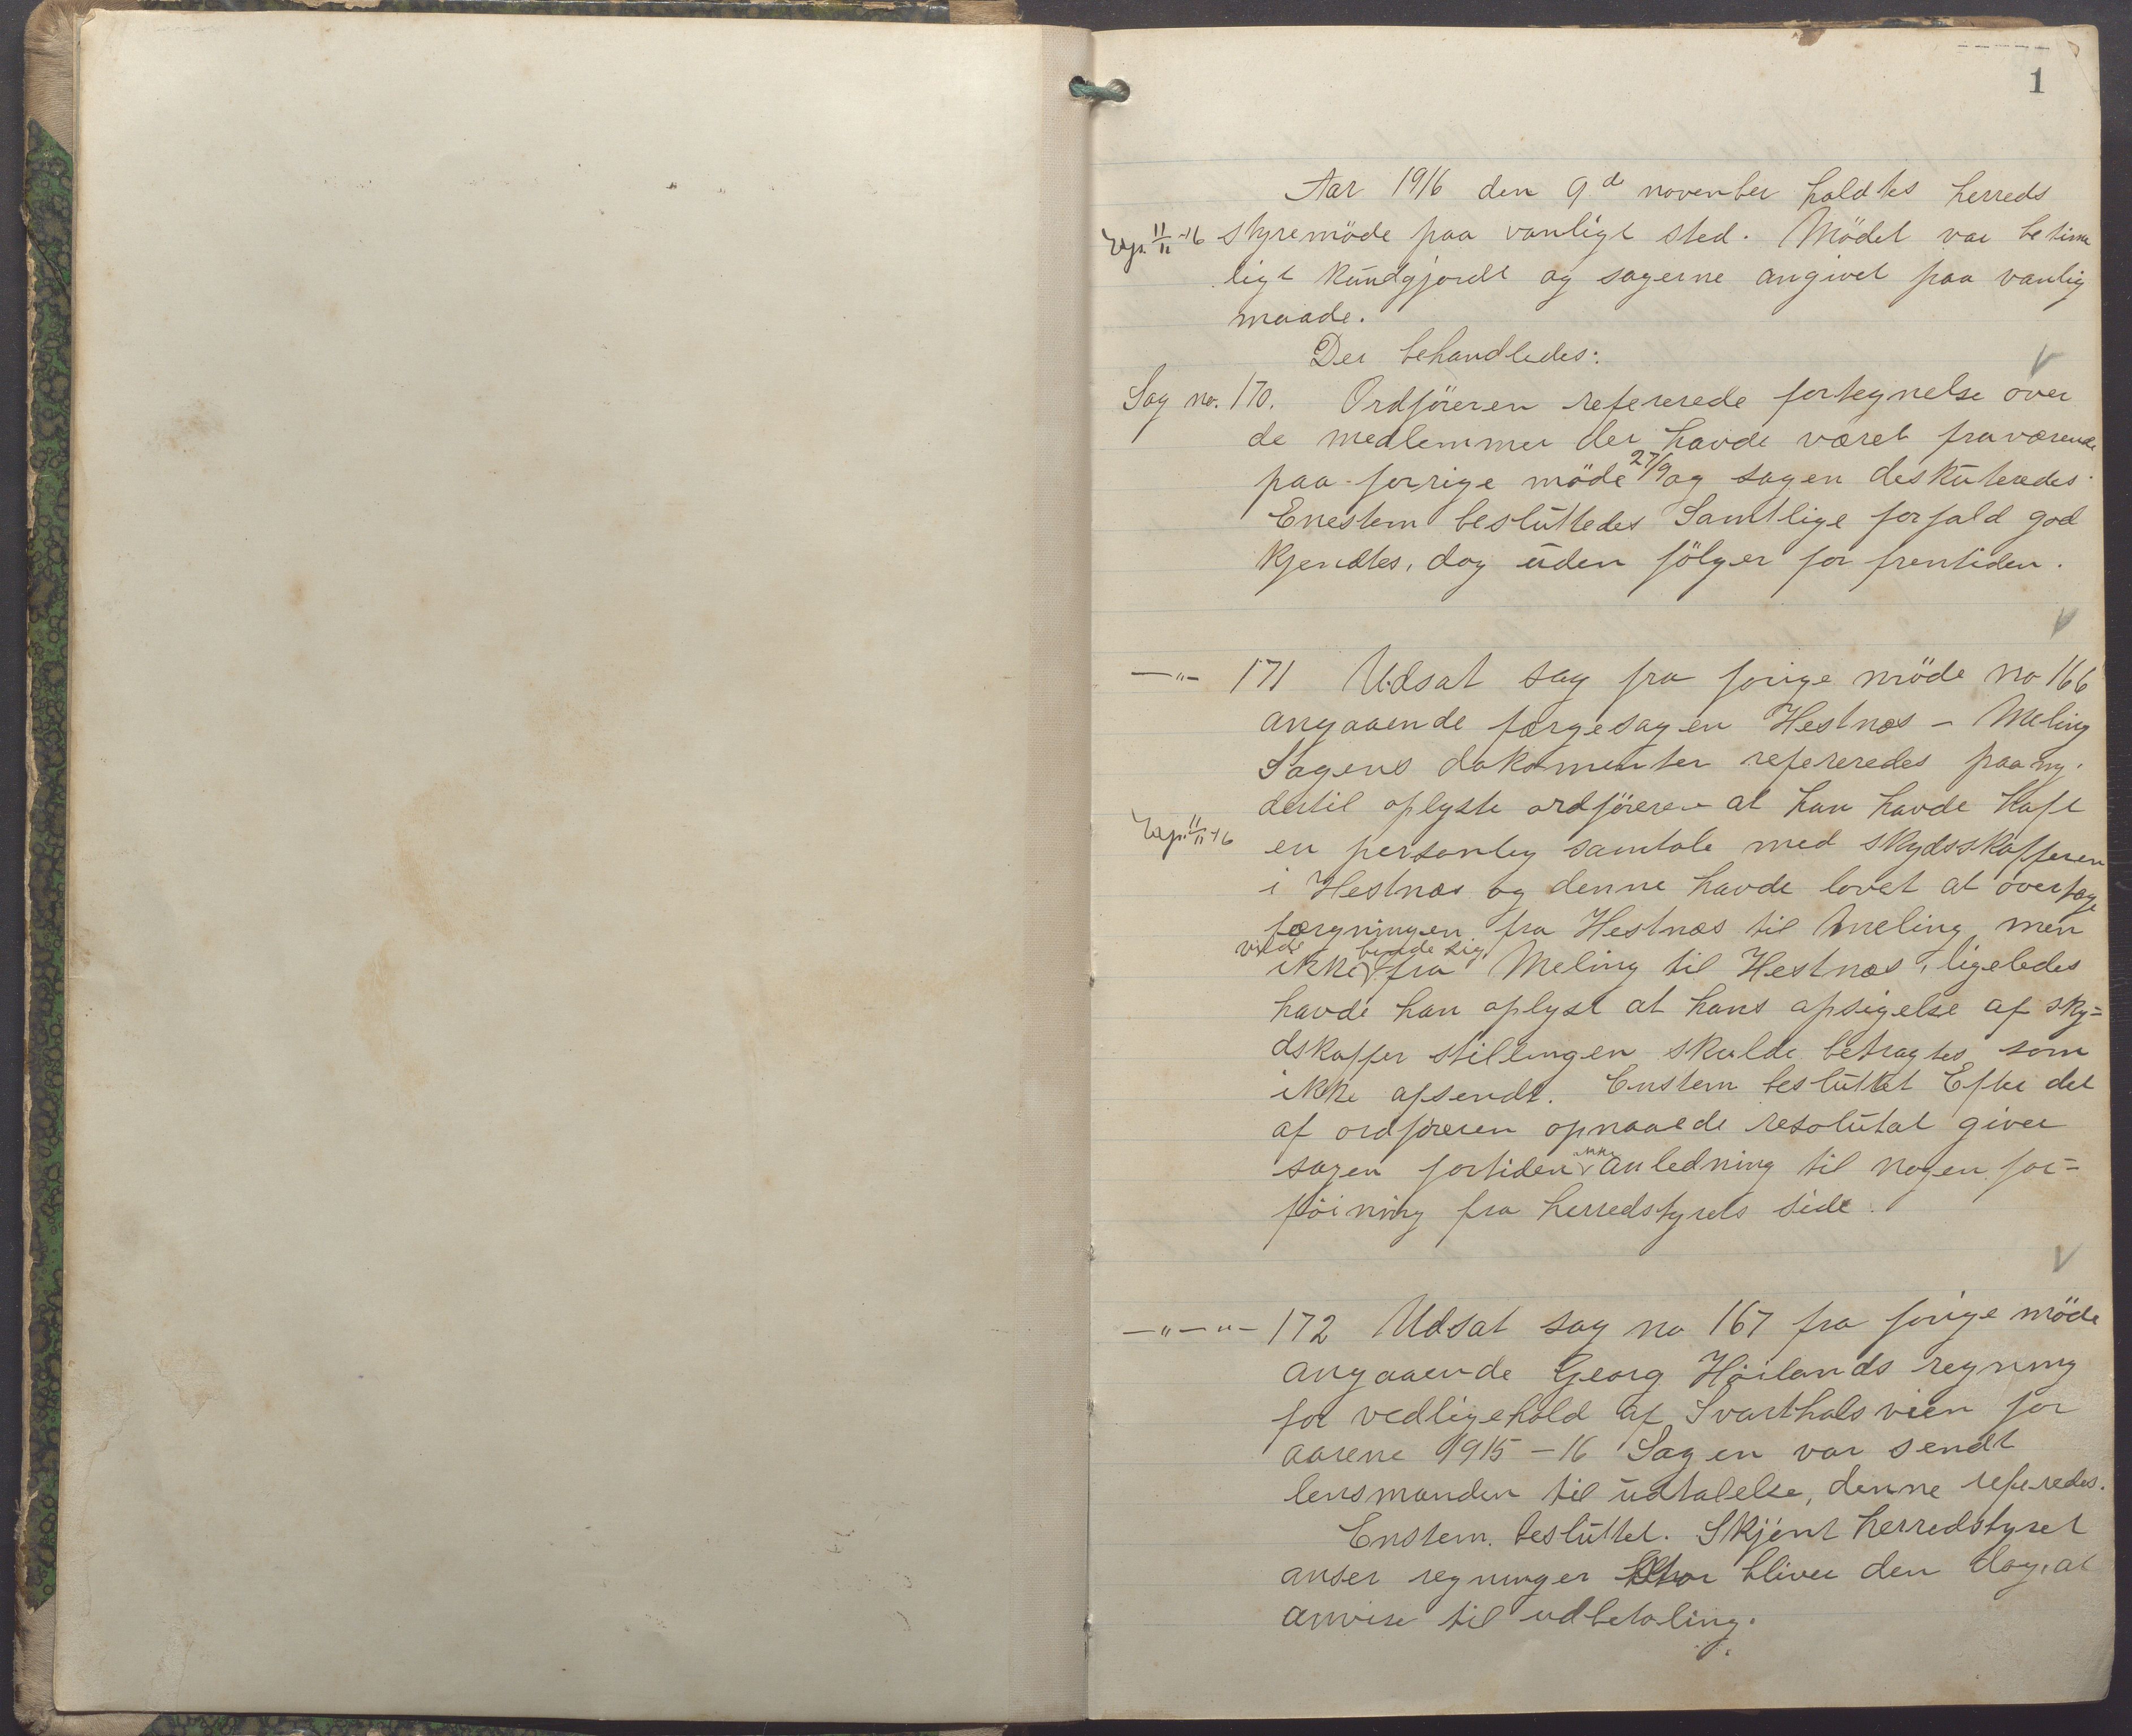 1
Aar 1916 den 9de november holdtes herreds
Exp. 11/11-16 styremöde paa vanligt sted. Mödet var betime
ligt kundgjordt og sagerne angivet paa vanlig
maade.
Der behandledes:
Sag no. 170. Ordföreren refererede fortegnelse over
de medlemmer der havde været fraværende
paa forrige möde 27/9 og sagen deskuteredes.
Enestem besluttedes Samtlige forfald god
kjendtes, dog uden fölger for fremtiden.
—"— 171 Udsat sag fra forige möde no 166
angaaende færgesagen Hestnæs - Meling
Sagens dokomenter refereredes paany.
dertil oplyste ordföreren at han havde haft
Exp. 11/11-16 en personlig samtale med skydsskafferen
i Hestnæs og denne havde lovet at overtage
færgningen fra Hestnæs til Meling men
vilde binde sig
ikke fra Meling til Hestnæs, ligeledes
havde han oplyst at hans opsigelse af sky=
dskaffer stillingen skulde betragtes som
ikke afsendt. Enstem besluttet Efter det
af ordföreren opnaaede resolutat giver
sagen fortiden ikke anledning til nogen for=
föining fra herredstyrets side.
—"—"— 172 Udsat sag no 167 fra forige möde
angaaende Georg Höilands regning
for vedligehold af Svarthals veien for
aarene 1915-16 Sagen var sendt
lensmanden til udtalelse, denne referedes.
Enstem. besluttet. Skjönt herredstyret
anser regninger bliver den dog, at
anvise til udbetaling.